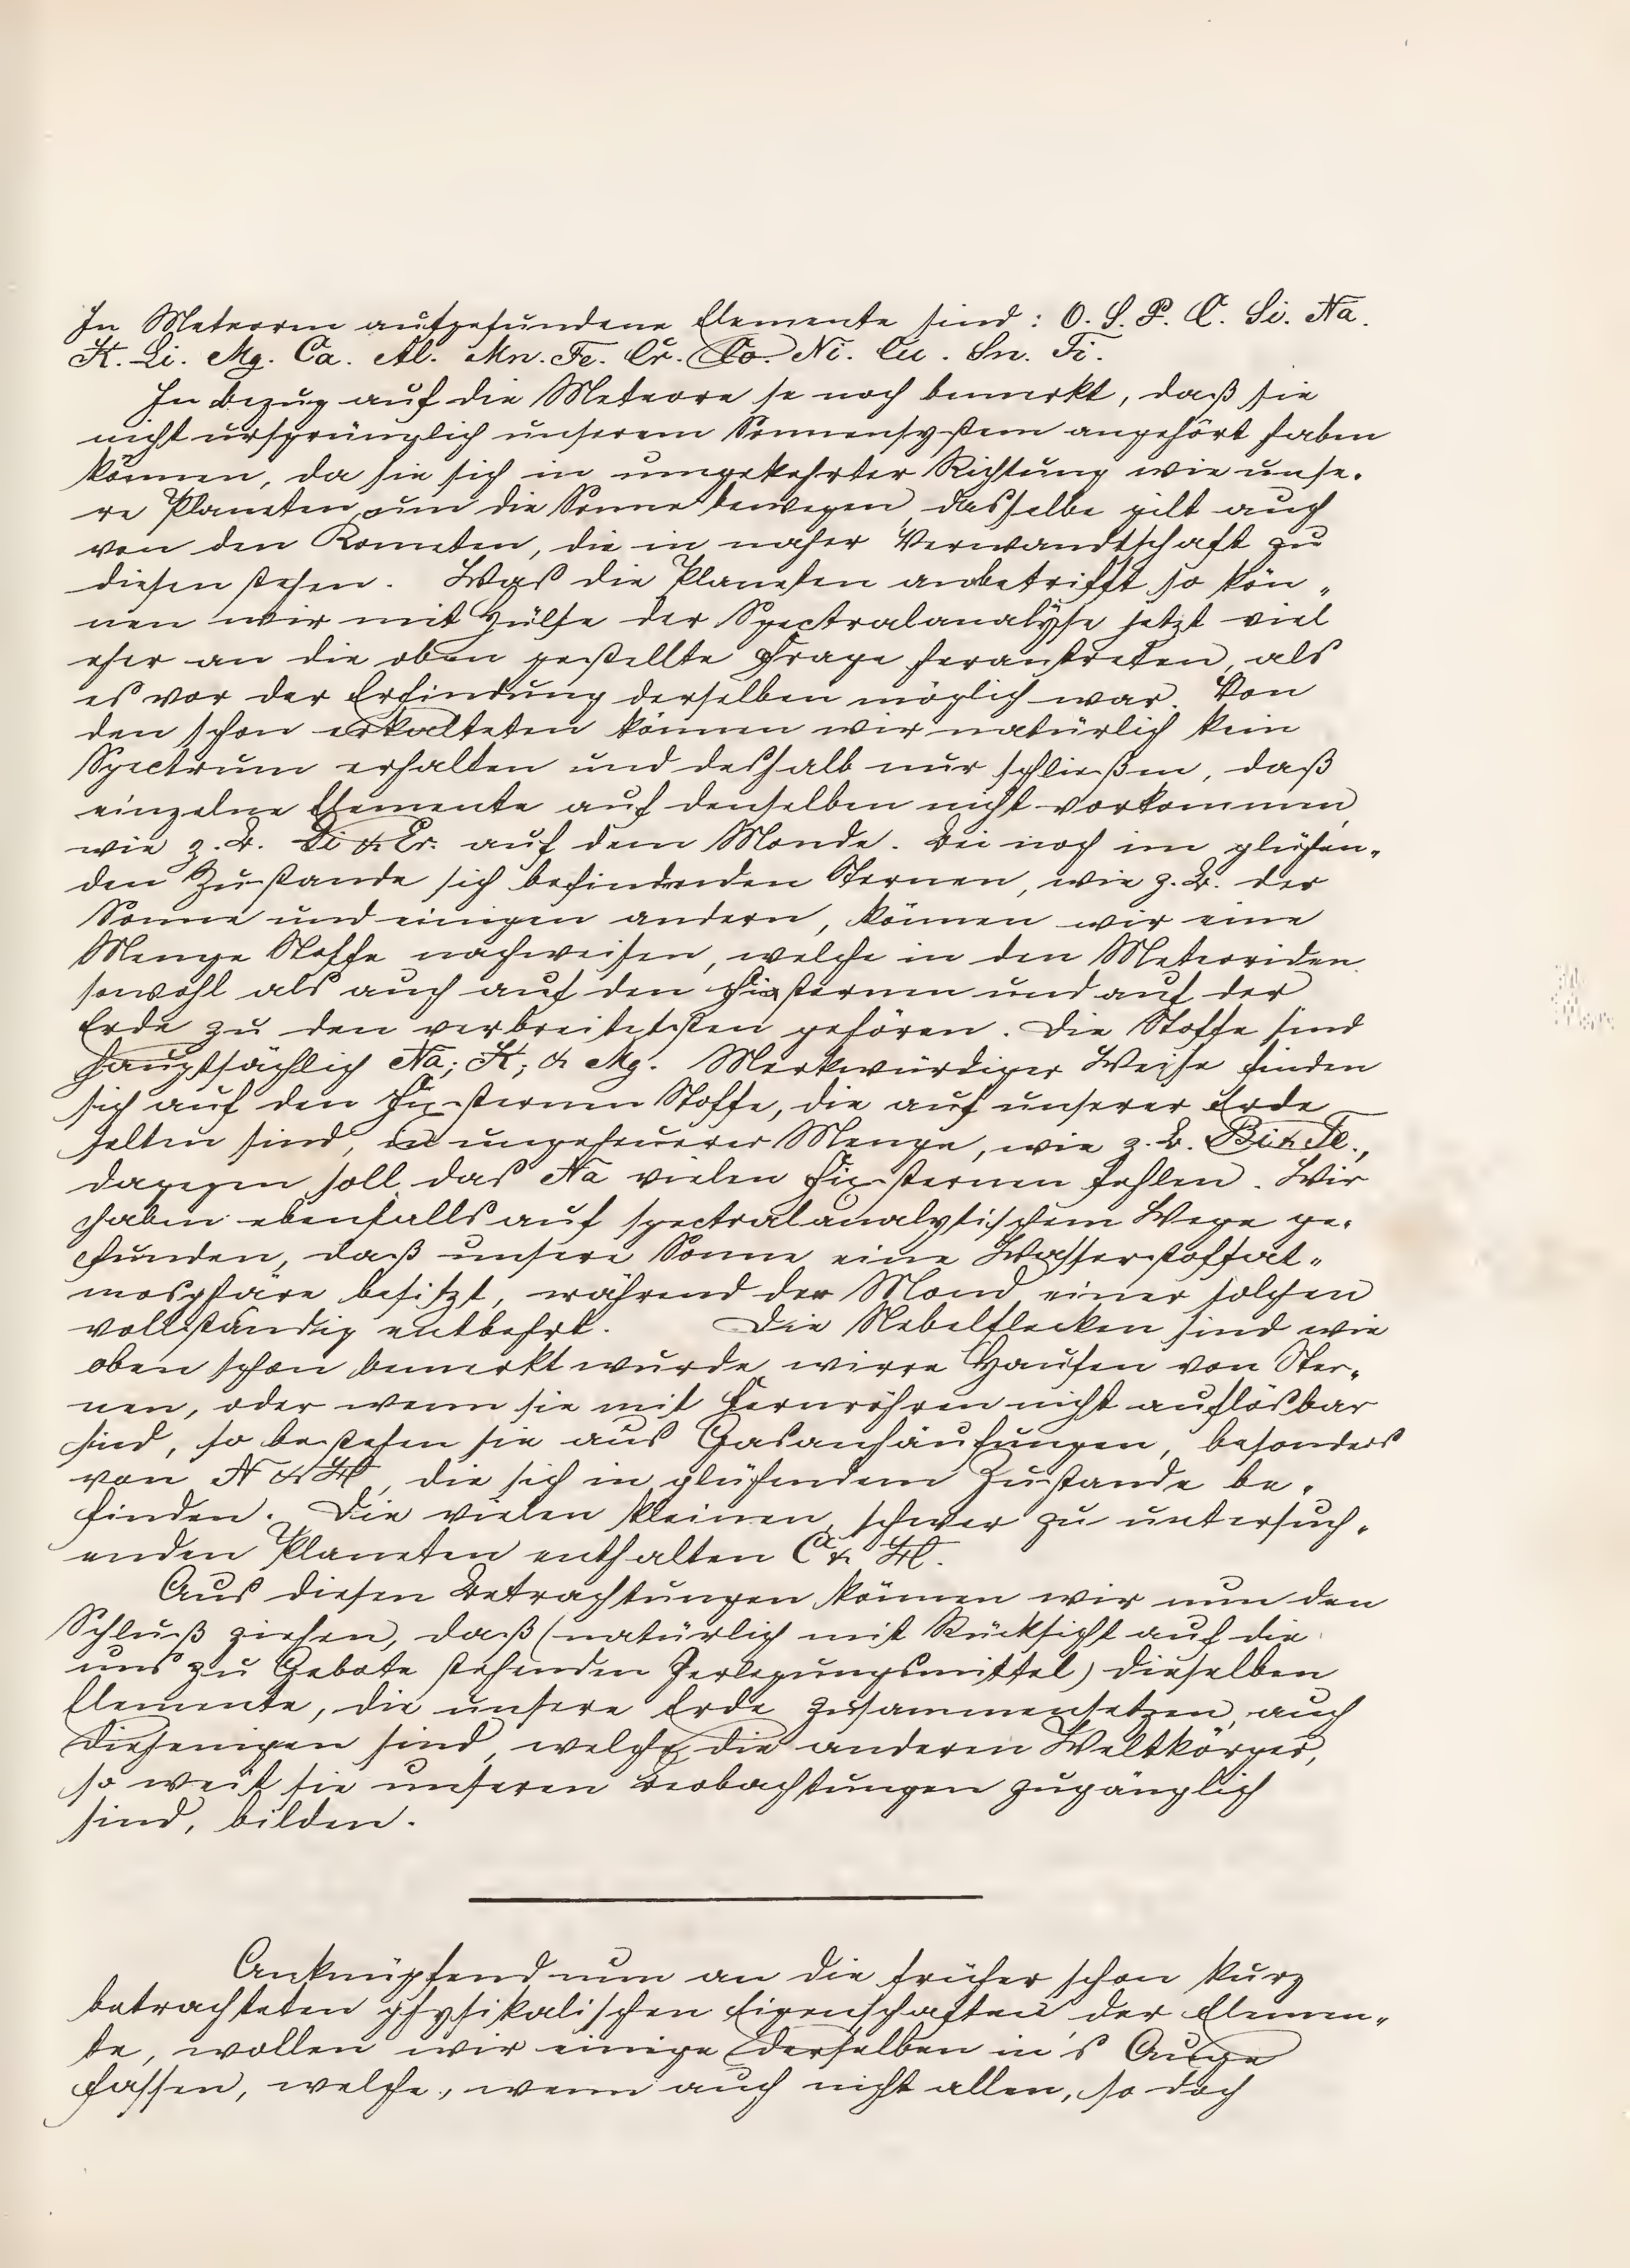 In Meteoren aufgefundene Elemente sind: O. S. P. C. Si. Na.
K. Li. Mg. Ca. Al. Mn. Fe. Cr. Co. Ni. Cu. Sn. Ti.
In Bezug auf die Meteore se noch bemerkt, daß sie
nicht ursprünglich unserem Sonnensystem angehört haben
können, da sie sich in umgekehrter Richtung wie unse-
re Planeten um die Sonne bewegen, dasselbe gilt auch
von den Kometen, die in naher Verwandtschaft zu
diesen stehen. Was die Planeten anbetrifft so kön-
nen wir mit Hülfe der Spectralanalyse jetzt viel
eher an die oben gestellte Frage herantreten, als
es vor der Erfindung derselben möglich war. Von
den schon erkalteten können wir natürlich kein
Spectrum erhalten und deshalb nur schließen, daß
einzelne Elemente auf denselben nicht vorkommen,
wie z. B. & auf dem Monde. Bei noch im glühen-
den Zustande sich befindenden Sternen, wie z. B. der
Sonne und einigen andern, können wir eine
Menge Stoffe nachweisen, welche in den Meteoriden
sowohl als auch auf den Fixsternen und auf der
Erde zu den verbreitetsten gehören. Die Stoffe sind
hauptsächlich Na; K; & Mg. Merkwürdiger Weise finden
sich auf den Fixsternen Stoffe, die auf unserer Erde
selten sind, in ungeheuerer Menge, wie z. B. Bi & Te.,
dagegen soll das Na vielen Fixsternen fehlen. Wir
haben ebenfalls auf spectralanalytischem Wege ge-
funden, daß unsere Sonne eine Wasserstoffat-
mosphäre besitzt, während der Mond einer solchen
vollständig entbehrt. Die Nebelflecken sind wie
oben schon bemerkt wurde wirre Haufen von Ster-
nen, oder wenn sie mit Fernröhren nicht auflösbar
sind, so bestehen sie aus Gasanhäufungen, besonders
von N & H, die sich in glühendem Zustande be-
finden. Die vielen kleinen, schwer zu untersuch-
enden Planeten enthalten & H.
Aus diesen Betrachtungen können wir nun den
Schluß ziehen, daß (natürlich mit Rücksicht auf die
uns zu Gebote stehenden Zerlegungsmittel) dieselben
Elemente, die unsere Erde zusammensetzen, auch
diejenigen sind, welche die anderen Weltkörper,
so weit sie unseren Beobachtungen zugänglich
sind, bilden.
Anknüpfend nun an die früher schon kurz
betrachteten physikalischen Eigenschaften der Elemen-
te, wollen wir einige derselben in's Auge
fassen, welche, wenn auch nicht allen, so doch